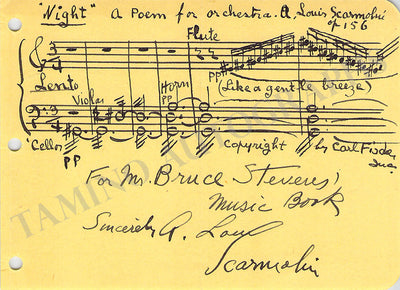 "Night" A Poem for orchestra. A. Louis Scarmolin
op 156
Flute
pp (Like a gentle breeze)
Lento
Violas
Horn
pp
'Cellos
pp
Copyright by Carl Fischer
Inc.
For Mr. Bruce Steveres'
Music Book
Sincerely A. Louis
Scarmolin
TAMINO AUTOGRAPHS